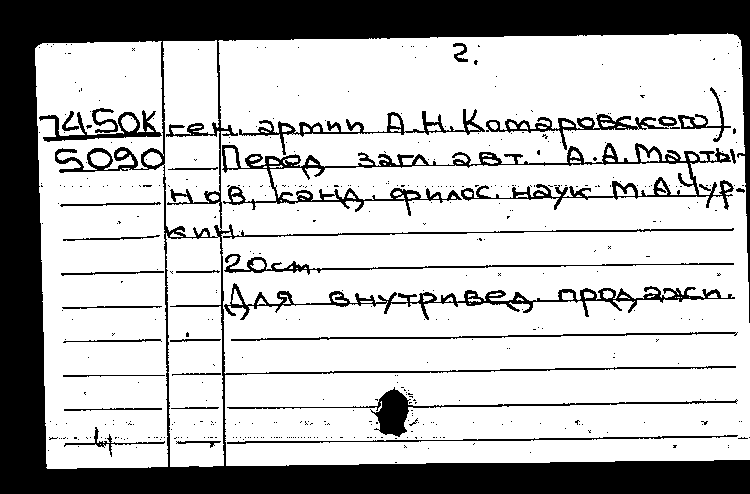 2.
74-50К ген. армии А.Н. Комаровского).
5090 Перед загл. авт.: А.А. Марты-
нов, канд. филос. наук М.А. Чур-
кин.
20 см.
Для внутривед. продажи.